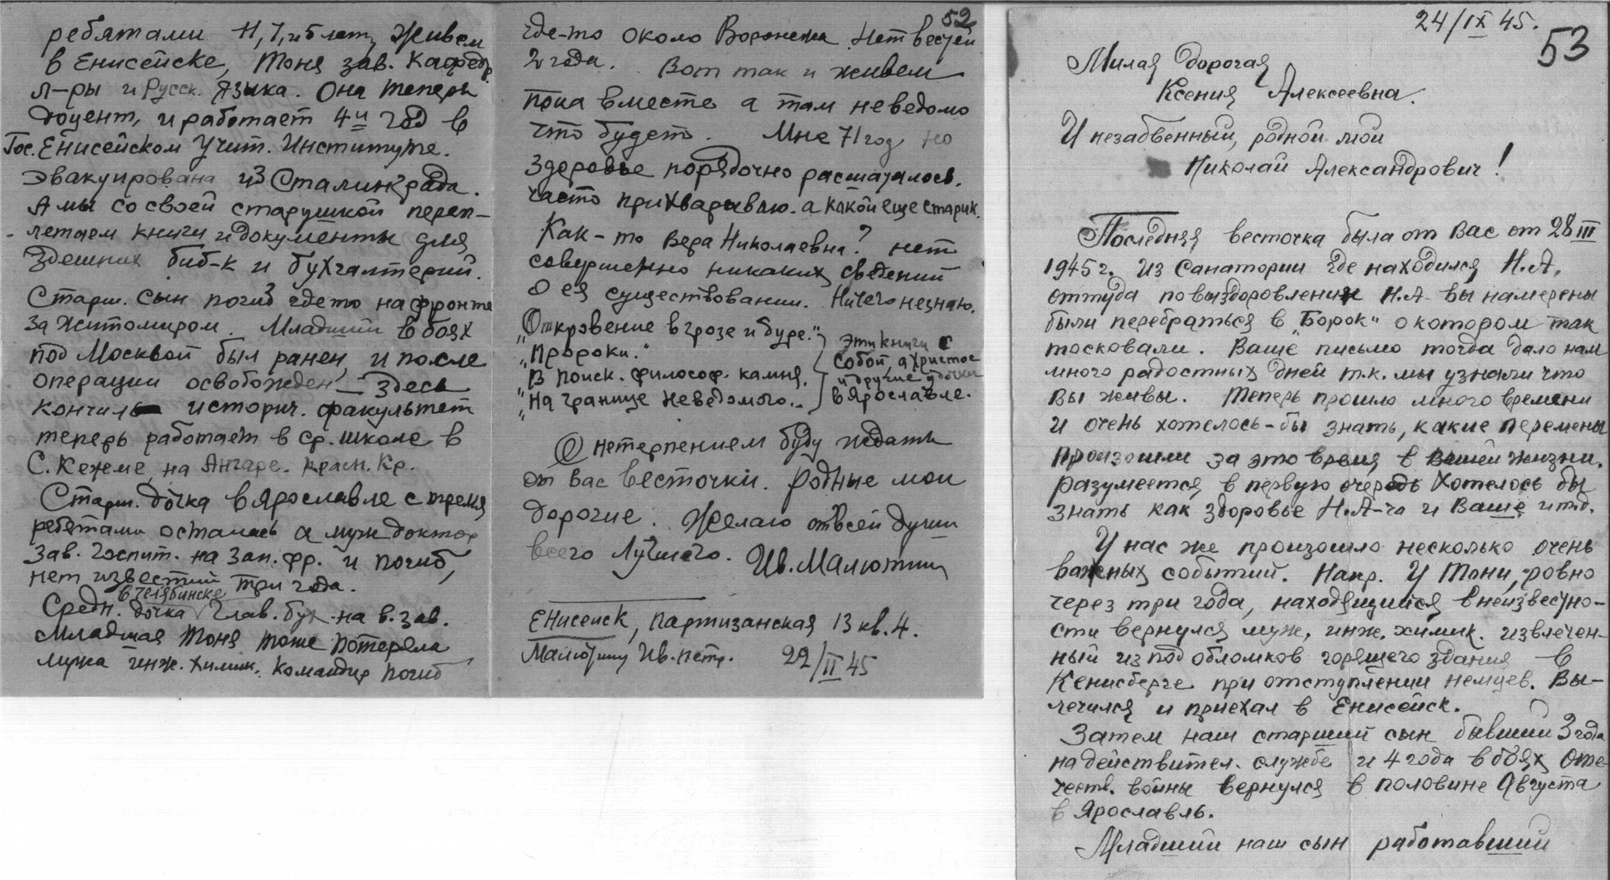 ребятами 11, 7, и 5 лет, живем
в Енисейске, Тоня зав. Кафедр.
л-ры и Русск. Языка. Она теперь
доцент, и работает 4й год в
Гос. Енисейском Учит. Институте.
Эвакуирована из Сталинграда.
А мы со своей старушкой переп-
летаем книги и документы для
здешних биб-к и бухгалтерий.
Старш. сын погиб где то на фронте
за Житомиром. Младший в боях
под Москвой был ранен, и после
операции освобожден — Здесь
кончил историч. факультет
теперь работает в ср. школе в
С. Кежме на Ангаре. Красн. Кр.
Старш. дочка в Ярославле с тремя
ребятами осталась а муж доктор
зав. госпит. на Зап. фр. и погиб,
нет известий три года.
в Челябинске
Средн. дочка Глав. бух. на в. зав.
Младшая Тоня тоже потеряла
мужа инж. химик. командир погиб
52
где-то около Воронежа. Нет вестей
2 года. Вот так и живем
пока вместе а там неведомо
что будет. Мне 71 год но
здоровье порядочно расшаталось.
Часто прихварываю. а какой еще старик.
Как-то Вера Николаевна? нет
совершенно никаких сведений
о ея существовании. Ничего не знаю.
„Откровение в грозе и буре."
„Пророки."
„В поиск. философ. камня.
„На границе Неведомого.„
Эти книги с
собой а Христос
и другие
в Ярославле.
С нетерпением буду ждать
от вас весточки. Родные мои
дорогие. Желаю от всей души
всего Лучшего. Ив. Малютин
Енисейск, Партизанская 13 кв. 4.
Малютину Ив. Петр. 22/II 45
24/IX 45.
53
Милая дорогая
Ксения Алексеевна.
И незабвенный, родной мой
Николай Александрович!
Последняя весточка была от Вас от 28 III
1945 г. из Санатории где находился Н.А.
оттуда по выздоровлении Н.А. вы намерены
были перебраться в „Борок" о котором так
тосковали. Ваше письмо тогда дало нам
много радостных дней т.к. мы узнали что
вы живы. Теперь прошло много времени
и очень хотелось-бы знать, какие перемены
произошли за это время в вашей жизни.
разумеется в первую очередь Хотелось бы
знать как здоровье Н.А-ча и Ваше и т.д.
У нас же произошло несколько очень
важных событий. Напр. У Тони, ровно
через три года, находящийся в неизвестно-
сти вернулся муж, инж. химик. извлечен-
ный из под обломков горящего здания в
Кенисберге при отступлении немцев. Вы-
лечился и приехал в Енисейск.
Затем наш старший сын бывший 3 года
на действител. службе и 4 года в боях Оте-
честв. войны вернулся в половине Августа
в Ярославль.
Младший наш сын работавший